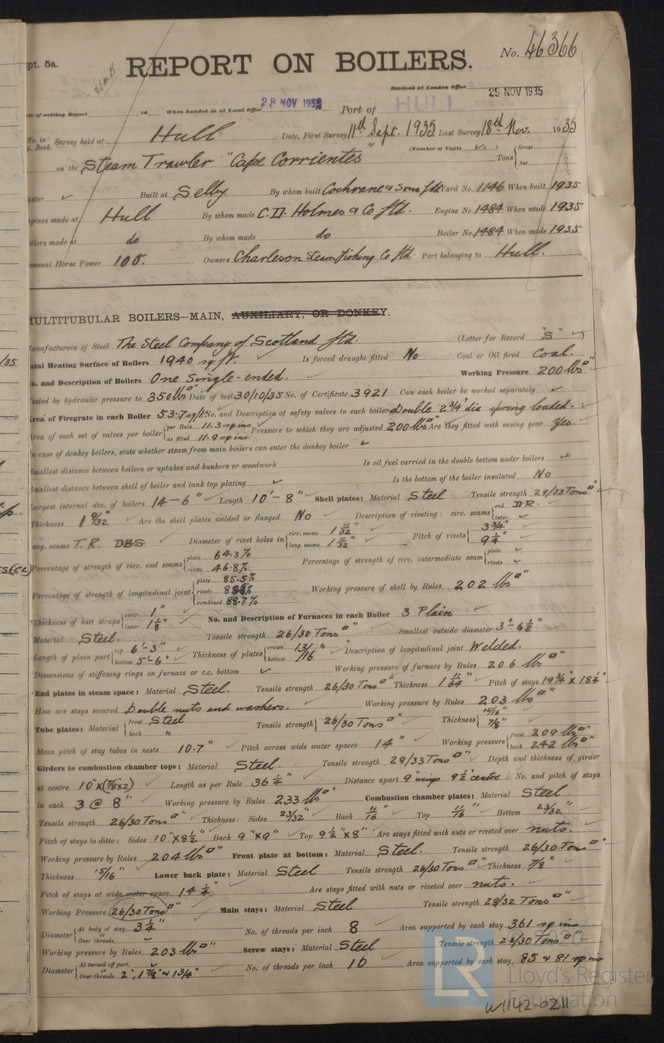 pt. 5a.
REPORT ON BOILERS.
No. 46366
Received at London Office 29 NOV 1935
te of writing Report 19 When handed in at Local Office 28 NOV 1935 Port of HULL
No. in Survey held at Hull Date, First Survey 11th Sept. 1935 Last Survey 18th Nov. 1935
Book. (Number of Visits ✓.)
on the Steam Trawler "Cape Corrientes" Tons {Gross Net
Built at Selby By whom built Cochrane & Sons Ltd Yard No. 1146 When built 1935
ngines made at Hull By whom made C.D. Holmes & Co Ltd. Engine No. 1484 When made 1935
oilers made at do By whom made do Boiler No. 1484 When made 1935
ominal Horse Power 105. Owners Charleson Smith Fishing Co Ltd Port belonging to Hull.
MULTITUBULAR BOILERS—MAIN, AUXILIARY, OR DONKEY.
anufacturers of Steel The Steel Company of Scotland Ltd. (Letter for Record "S" ✓)
otal Heating Surface of Boilers 1940 sq. ft. Is forced draught fitted No Coal or Oil fired Coal.
o. and Description of Boilers One Single-ended. Working Pressure 200 lbs □"
ested by hydraulic pressure to 350 lbs □" Date of test 30/10/35 No. of Certificate 3921 Can each boiler be worked separately ✓
Area of Firegrate in each Boiler 53.7 sq ft No. and Description of safety valves to each boiler Double 2 3/4" dia spring loaded.
Area of each set of valves per boiler {per Rule 11.3 sq ins as fitted 11.9 sq ins Pressure to which they are adjusted 200 lbs □" Are they fitted with easing gear Yes
In case of donkey boilers, state whether steam from main boilers can enter the donkey boiler ✓
Smallest distance between boilers or uptakes and bunkers or woodwork Is oil fuel carried in the double bottom under boilers ✓
Smallest distance between shell of boiler and tank top plating ✓ Is the bottom of the boiler insulated No
Largest internal dia. of boilers 14-6" Length 10'-8" Shell plates: Material Steel Tensile strength 29/33 Tons □"
Thickness 1 9/32 Are the shell plates welded or flanged No Description of riveting: circ. seams {end D.R. inter. ✓
long. seams T.R. DBS Diameter of rivet holes in {circ. seams 1 11/32" long. seams 1 11/32" Pitch of rivets {3 3/4" 9 1/4"
Percentage of strength of circ. end seams {plate 64.3% rivets 46.8% Percentage of strength of circ. intermediate seam {plate ✓ rivets ✓
Percentage of strength of longitudinal joint {plate 85.5% rivets combined 88.7% Working pressure of shell by Rules 202 lbs □"
Thickness of butt straps {outer 1" inner 1 1/8" No. and Description of Furnaces in each Boiler 3 Plain
Material Steel Tensile strength 26/30 Tons □" Smallest outside diameter 3'-6 1/2"
Length of plain part {top 6'-3" bottom 5'-6" Thickness of plates {crown bottom 13/16" Description of longitudinal joint Welded.
Dimensions of stiffening rings on furnace or c.c. bottom ✓ Working pressure of furnace by Rules 206 lbs □"
End plates in steam space: Material Steel. Tensile strength 26/30 Tons □" Thickness 1 11/64" Pitch of stays 19 3/4" x 18 1/4"
How are stays secured Double nuts and washers. Working pressure by Rules 203 lbs □"
Tube plates: Material {front Steel back " Tensile strength {26/30 Tons □" Thickness {15/16" 7/8"
Mean pitch of stay tubes in nests 10.7" Pitch across wide water spaces 14" Working pressure {front 209 lbs □" back 242 lbs □"
Girders to combustion chamber tops: Material Steel. Tensile strength 29/33 Tons □" Depth and thickness of girder
at centre 10" x (7/8" x 2) Length as per Rule 36 1/4" Distance apart 9" wings 9 1/2" centre No. and pitch of stays
in each 3 @ 8" Working pressure by Rules 233 lbs □" Combustion chamber plates: Material Steel
Tensile strength 26/30 Tons □" Thickness: Sides 23/32" Back 11/16" Top 11/16" Bottom 23/32"
Pitch of stays to ditto: Sides 10" x 8 1/2" Back 9" x 9" Top 9 1/2" x 8" Are stays fitted with nuts or riveted over nuts.
Working pressure by Rules 204 lbs □" Front plate at bottom: Material Steel. Tensile strength 26/30 Tons □"
Thickness 15/16" Lower back plate: Material Steel Tensile strength 26/30 Tons □" Thickness 7/8"
Pitch of stays at wide water space 14 1/4" Are stays fitted with nuts or riveted over nuts.
Working Pressure 26/30 Tons □" Main stays: Material Steel Tensile strength 28/32 Tons □"
Diameter {At body of stay, 3 1/4" Over threads ✓ No. of threads per inch 8 Area supported by each stay 361 sq ins
Working pressure by Rules 203 lbs □" Screw stays: Material Steel Tensile strength 26/30 Tons □"
Diameter {At turned off part, Over threads 2", 1 7/8" & 1 3/4" No. of threads per inch 10 Area supported by each stay, 85 & 81 sq ins
LR
© 2020
Lloyd's Register
Foundation
W1142-0211